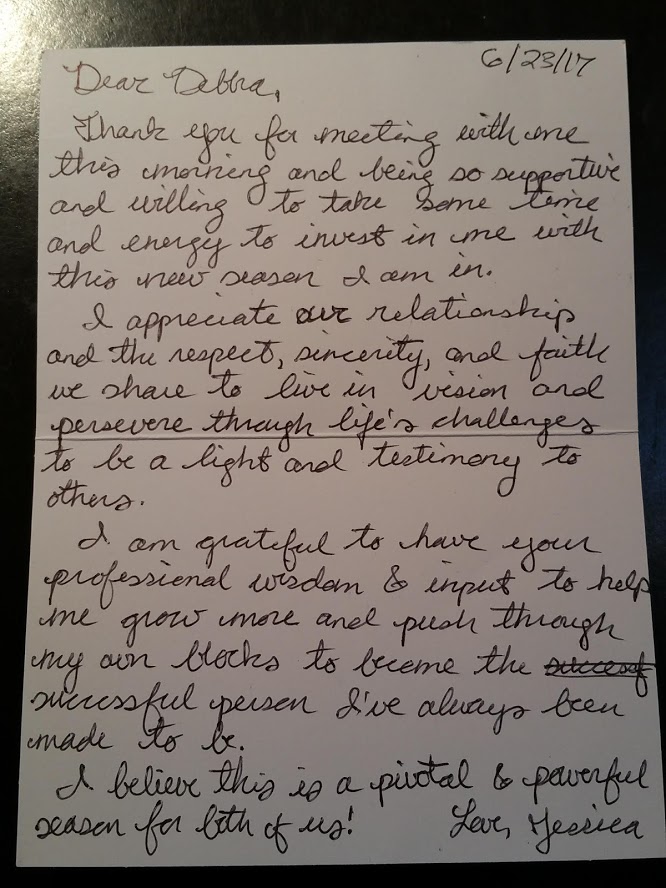 6/23/17
Dear Debra,
Thank you for meeting with me
this morning and being so supportive
and willing to take some time
and energy to invest in me with
this new season I am in.
I appreciate our relationship
and the respect, sincerity, and faith
we share to live in vision and
persevere through life's challenges
to be a light and testimony to
others.
I am grateful to have your
professional wisdom & input to help
me grow more and push through
my own blocks to become the successf
successful person I've always been
made to be.
I believe this is a pivotal & powerful
season for both of us! Love, Jessica